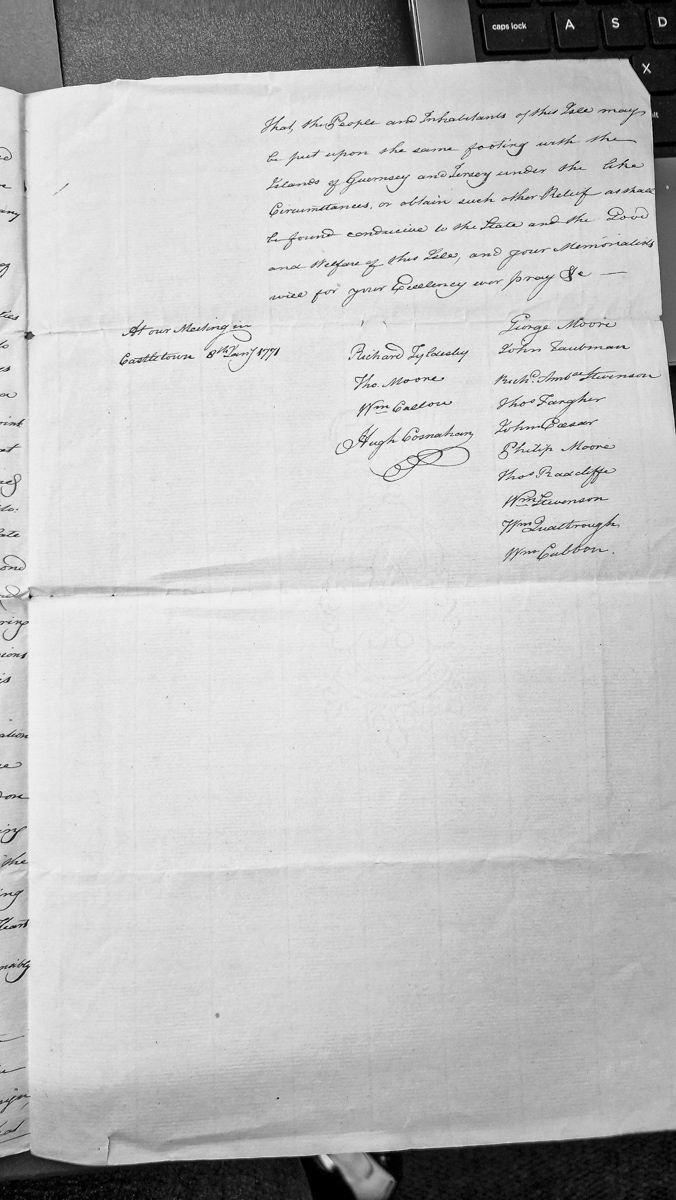 caps lock
A
S
D
X
That, the People and Inhabitants of this Isle may
be put upon the same footing with the
Islands of Guernsey and Jersey under the like
Circumstances, or obtain such other Relief as shall
be found conducive to the State and the Good
and Welfare of this Isle, and your Memorialists
will for your Excellency ever pray &c —
At our Meeting in
Castletown 8th Janry 1771
Richard Tyldesley
Tho. Moore
Wm Callow
Hugh Cosnahan
George Moore
John Taubman
Richd. Ambse Stevenson
Thos Fargher
John Cæsar
Philip Moore
Thos Radcliffe
Wm Stevenson
Wm Qualtrough
Wm Cubbon.